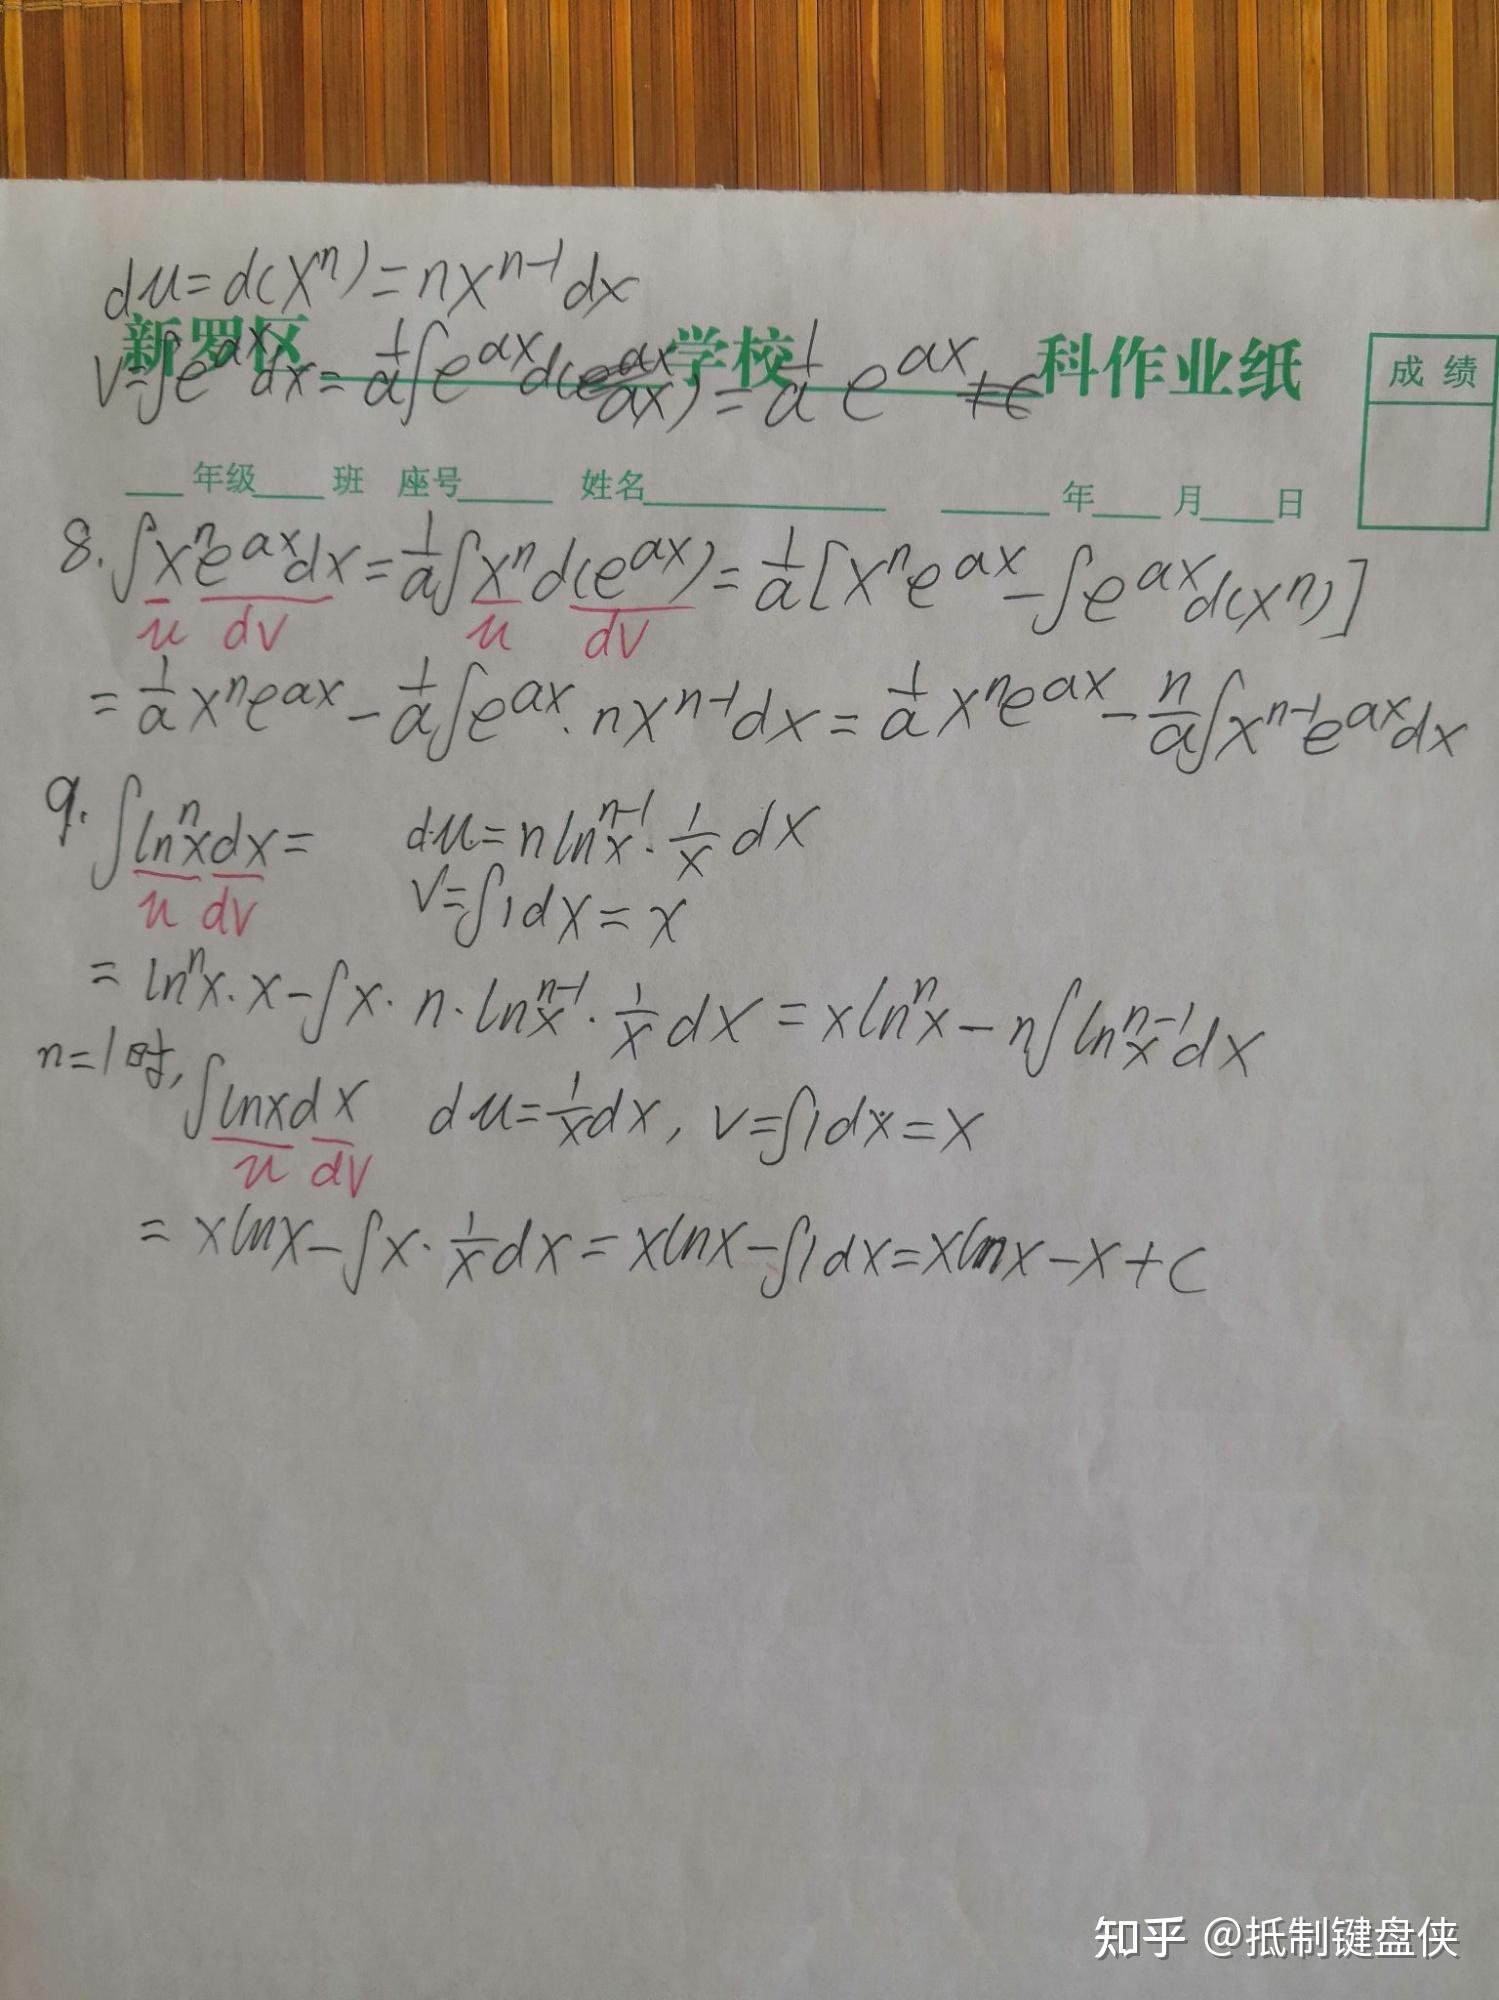 du=d(xⁿ)=nxⁿ⁻¹dx
新罗区 学校 科作业纸
成绩
v=∫eᵃˣdx=1/a∫eᵃˣd(ax)=1/a eᵃˣ
年级 班 座号 姓名 年 月 日
8. ∫xⁿeᵃˣdx=1/a∫xⁿd(eᵃˣ)=1/a[xⁿeᵃˣ-∫eᵃˣd(xⁿ)]
u dv u dv
=1/a xⁿeᵃˣ-1/a∫eᵃˣ·nxⁿ⁻¹dx=1/a xⁿeᵃˣ-n/a∫xⁿ⁻¹eᵃˣdx
9. ∫lnⁿxdx= du=nlnⁿ⁻¹x·1/x dx
u dv v=∫1dx=x
=lnⁿx·x-∫x·n·lnⁿ⁻¹x·1/x dx=xlnⁿx-n∫lnⁿ⁻¹xdx
n=1时, ∫lnxdx du=1/x dx, v=∫1dx=x
u dv
=xlnx-∫x·1/x dx=xlnx-∫1dx=xlnx-x+c
知乎 @抵制键盘侠